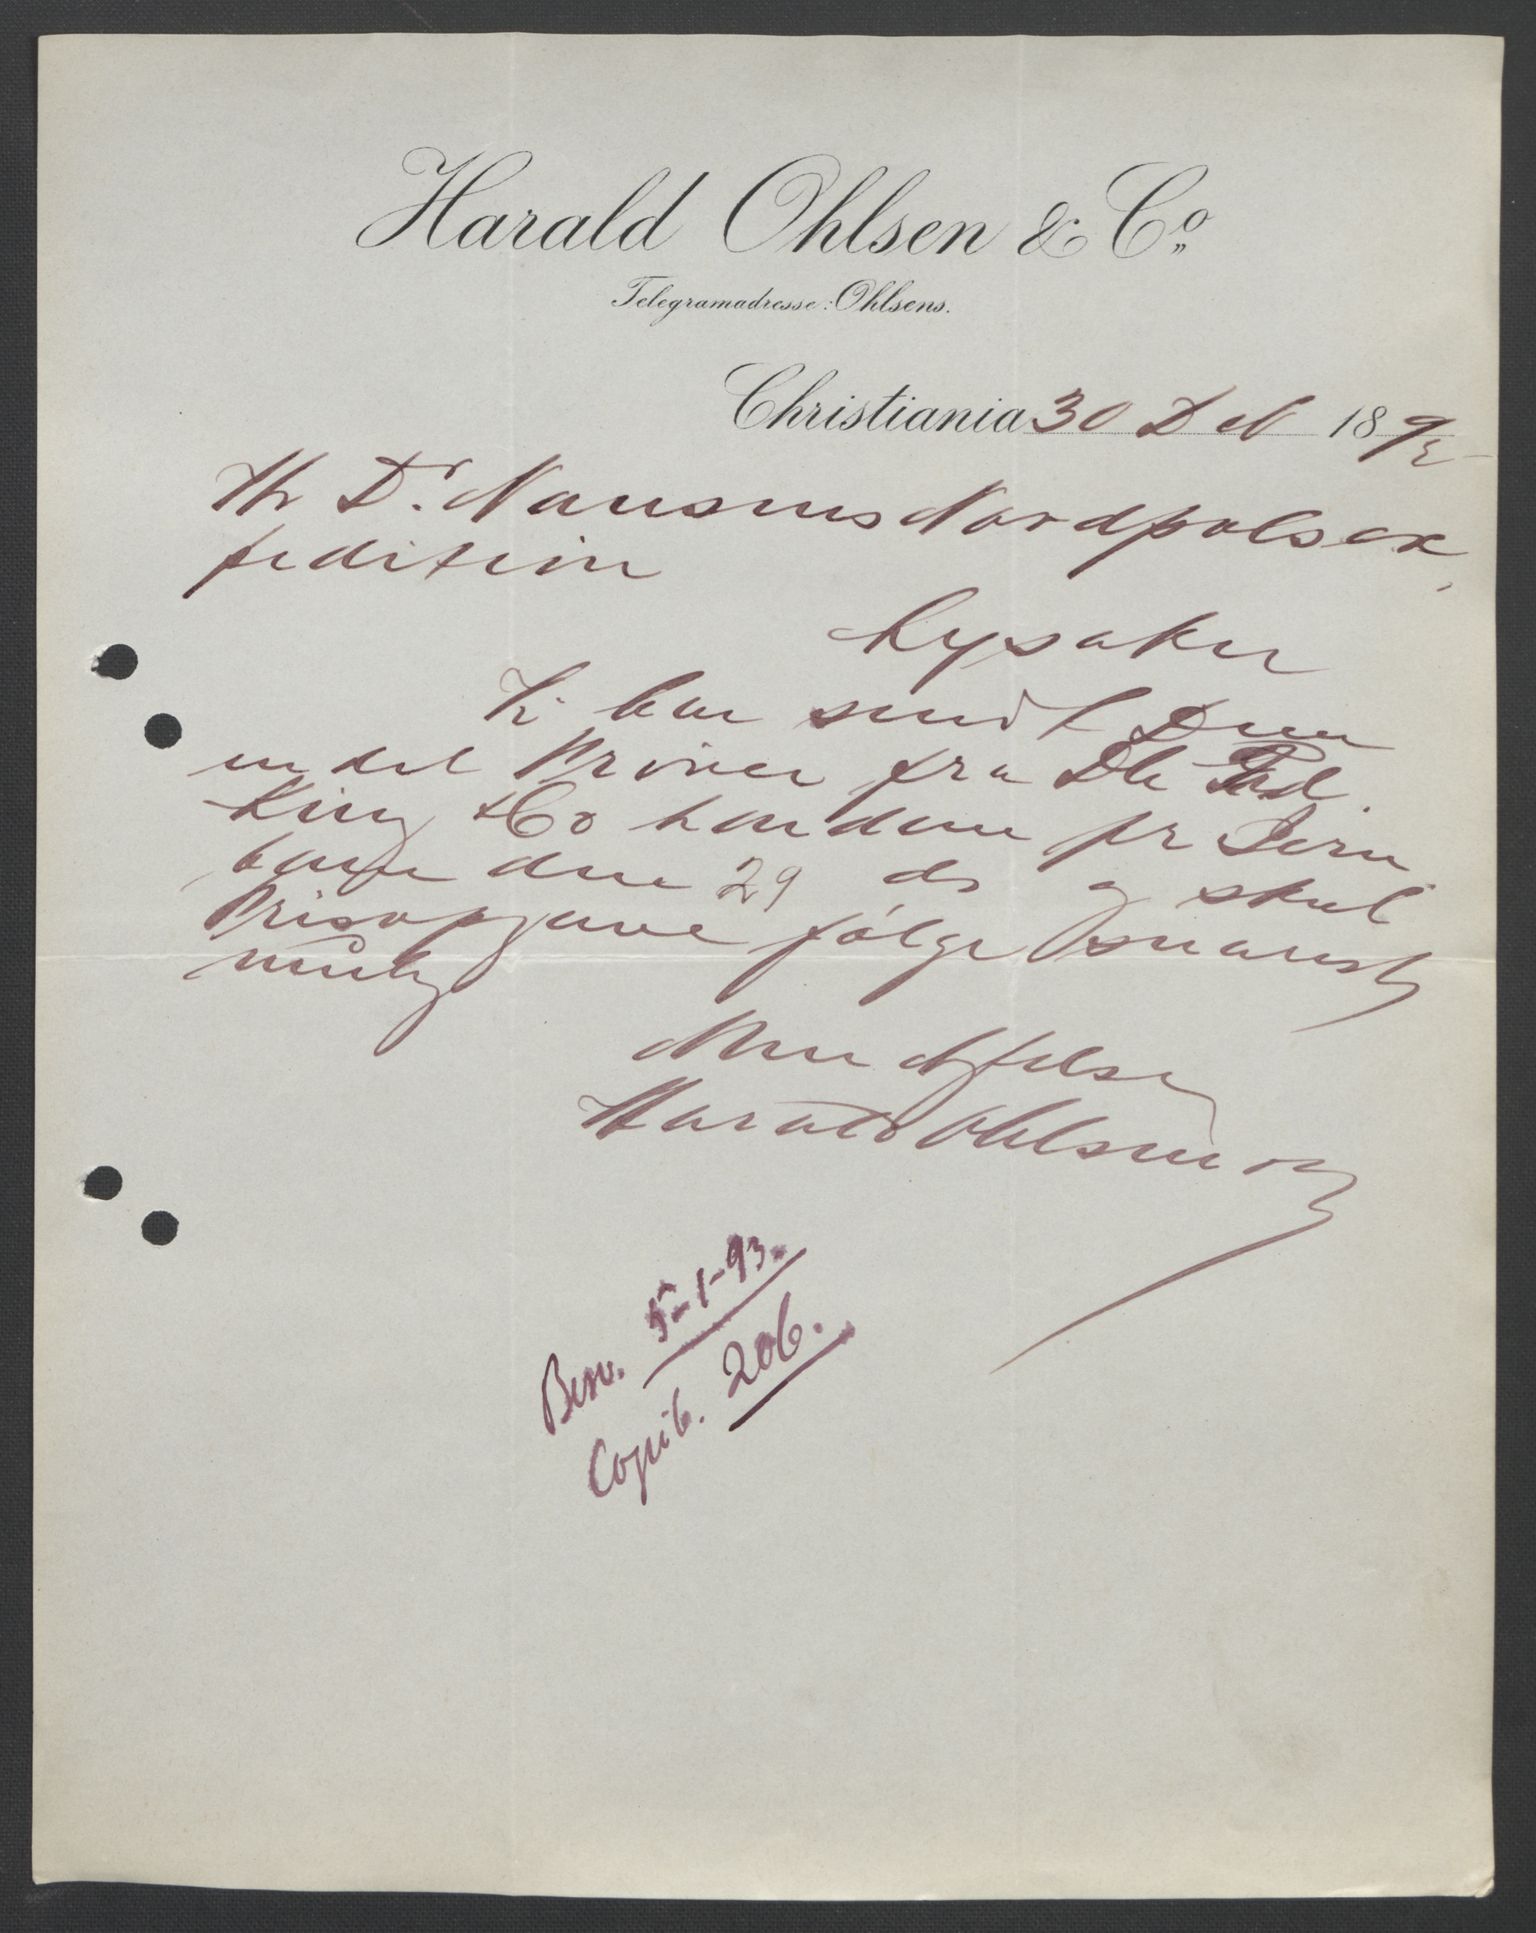 Harald Ohlsen & Co.
Telegramadresse: Ohlsens.
Christiania 30 Dec 1892
Hr Dr. Nansens Nordpolsex
pedition
Lysaker
Vi har sendt Dem
en del Prøver fra D'Hr Fred.
King & Co London pr Jern
bane den 29 ds og skal
Prisopgave følge snarest
mulig
Med Agtelse
Harald Ohlsen & Co
Besv. 5-1-93.
Copib. 206.